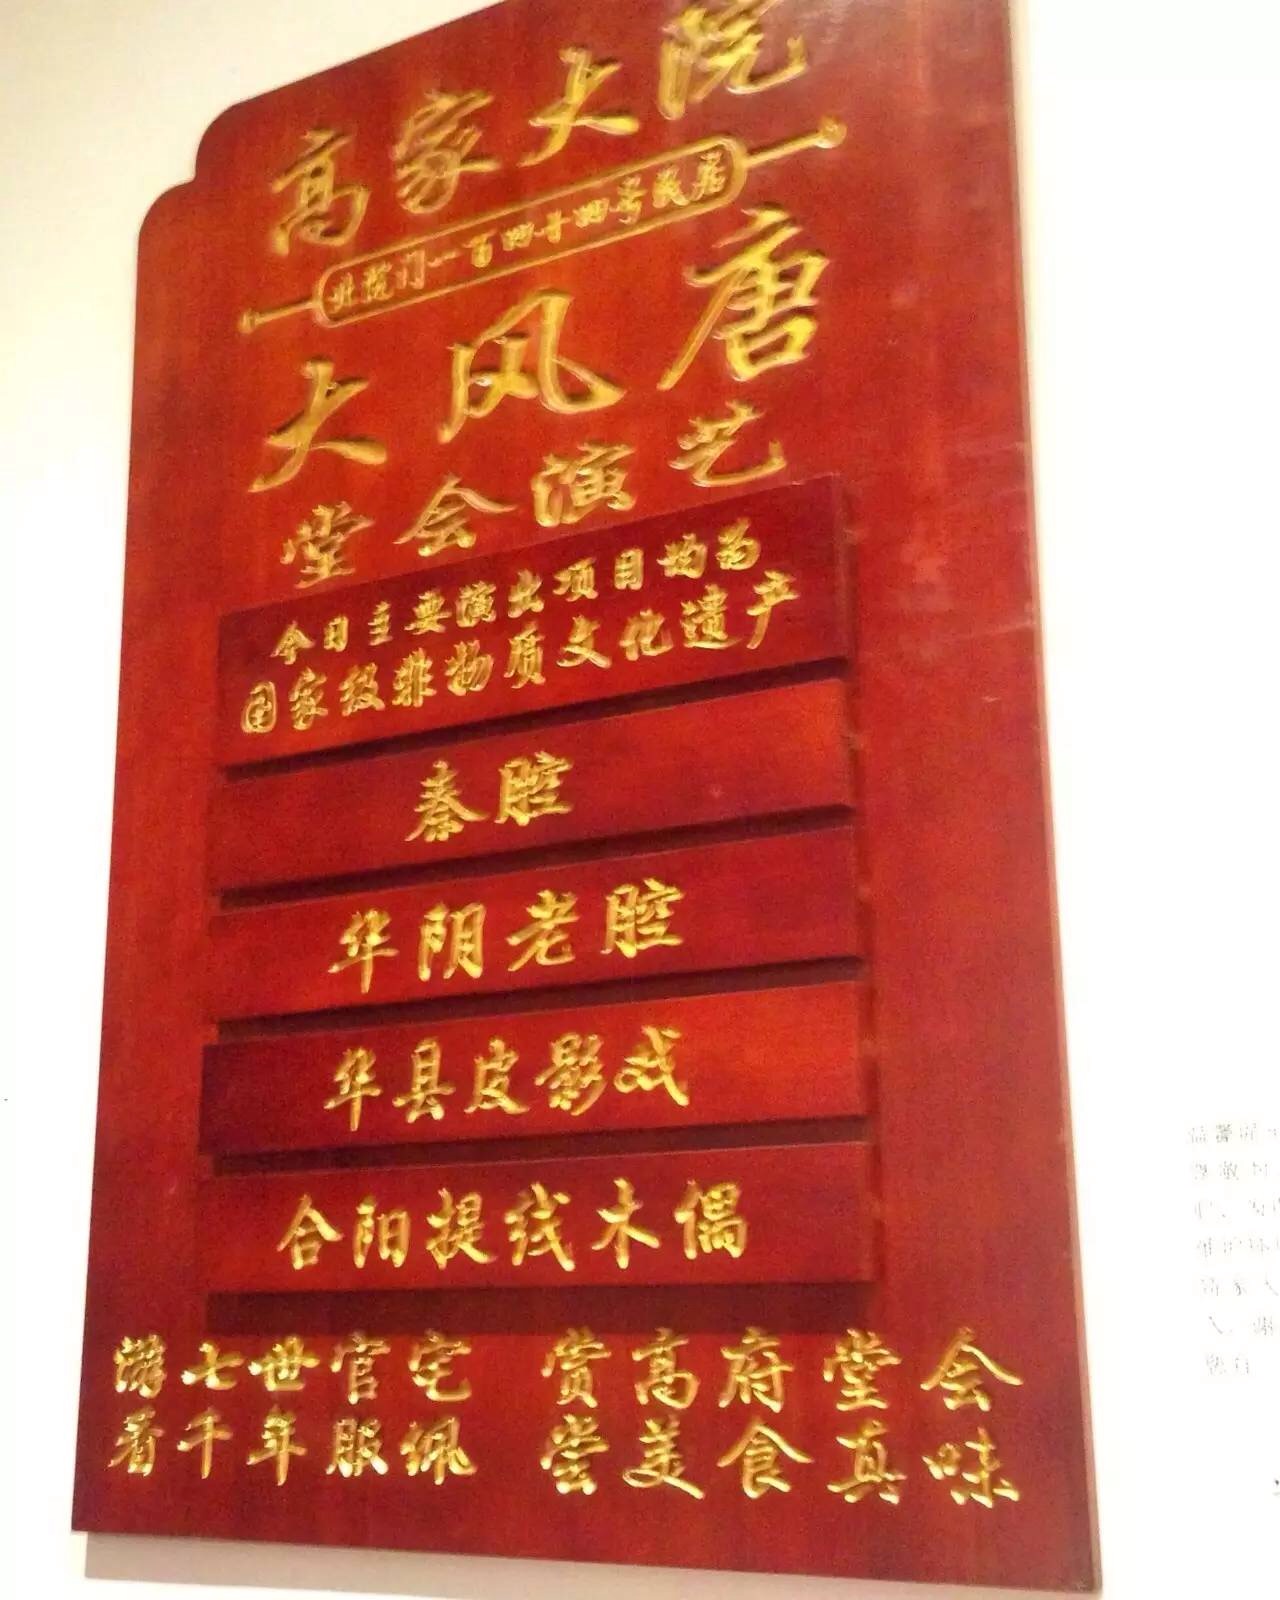 高家大院
北院门一百四十四号民居
大风唐
堂会演艺
今日主要演出项目均为
国家级非物质文化遗产
秦腔
华阴老腔
华县皮影戏
合阳提线木偶
游七世官宅 赏高府堂会
看千年服佩 尝美食真味